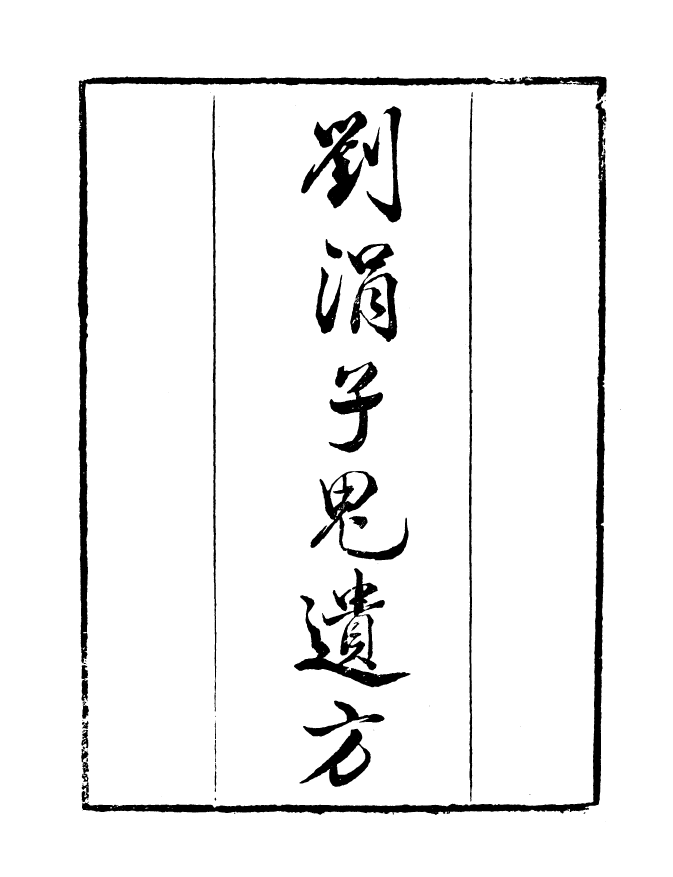 劉涓子鬼遺方